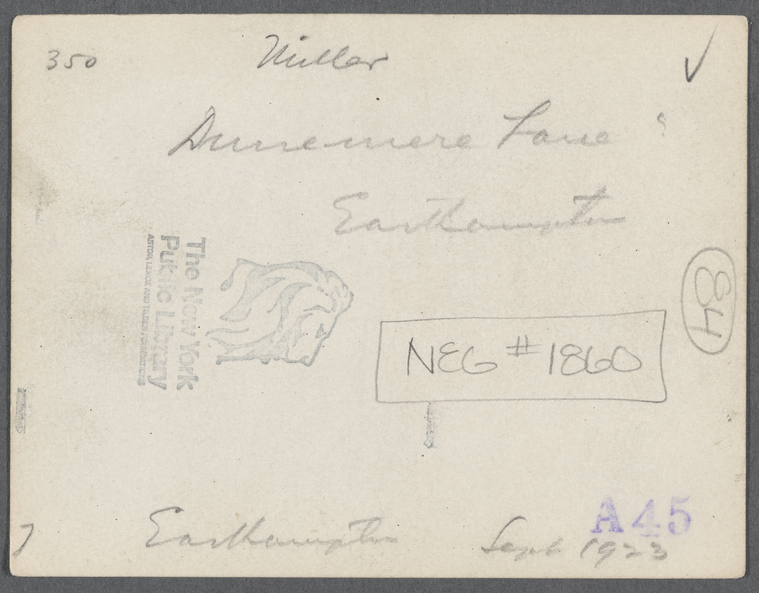 350 Miller ✓
Dunemere Lane
Easthampton
The New York
Public Library
ASTOR, LENOX AND TILDEN FOUNDATIONS
84
NEG #1860
A45
7 Easthampton Sept 1923